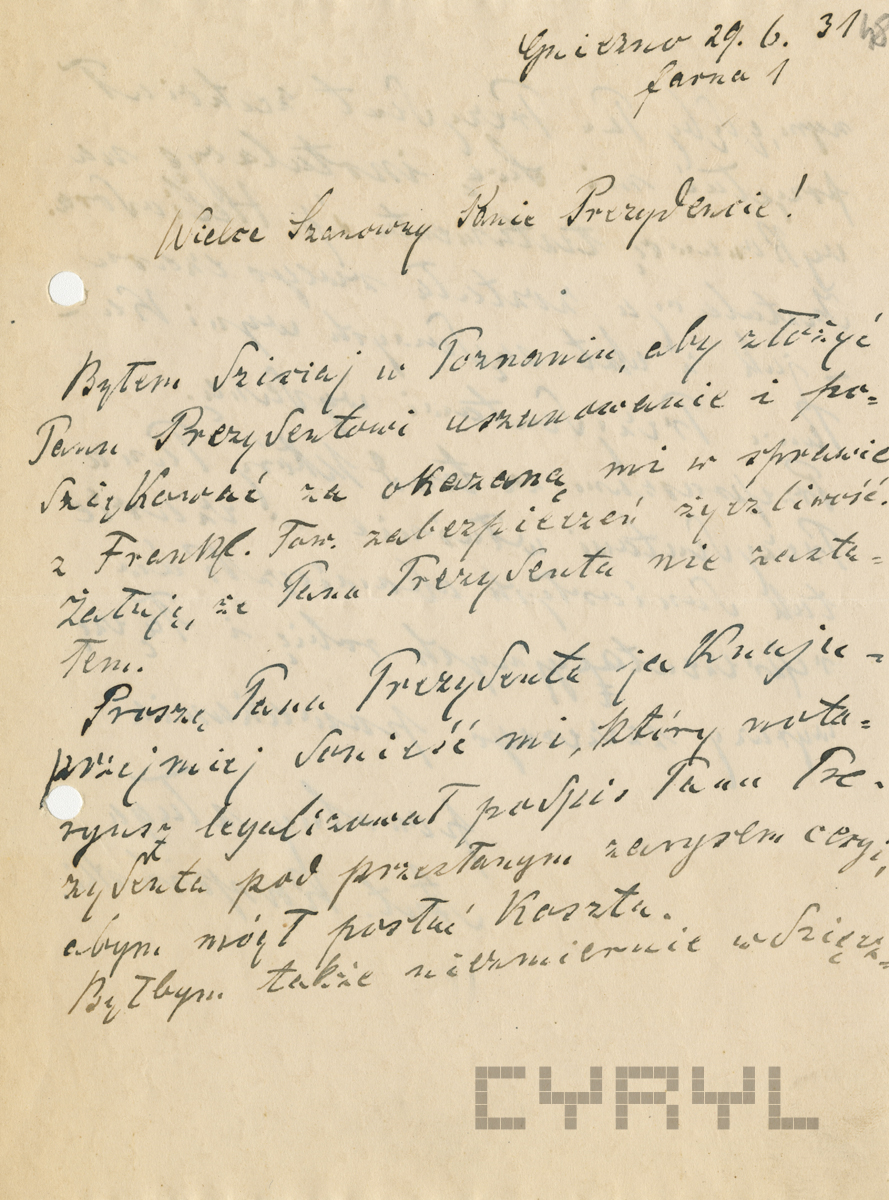 Gniezno 29. 6. 31
farna 1
Wielce Szanowny Panie Prezydencie!
Byłem dzisiaj w Poznaniu, aby złożyć
Panu Prezydentowi uszanowanie i po=
dziękować za okazaną mi w sprawie
z Frankf. Tow. zabezpieczeń życzliwość.
Żałuję, że Pana Prezydenta nie zasta=
łem.
Proszę Pana Prezydenta jaknaju=
przejmiej donieść mi, który nota=
ryusz legalizował podpis Pana Pre-
zydenta pod przesłanym zarysem cesyi,
abym mógł posłać koszta.
Byłbym także niezmiernie wdzięcz=
CYRYL